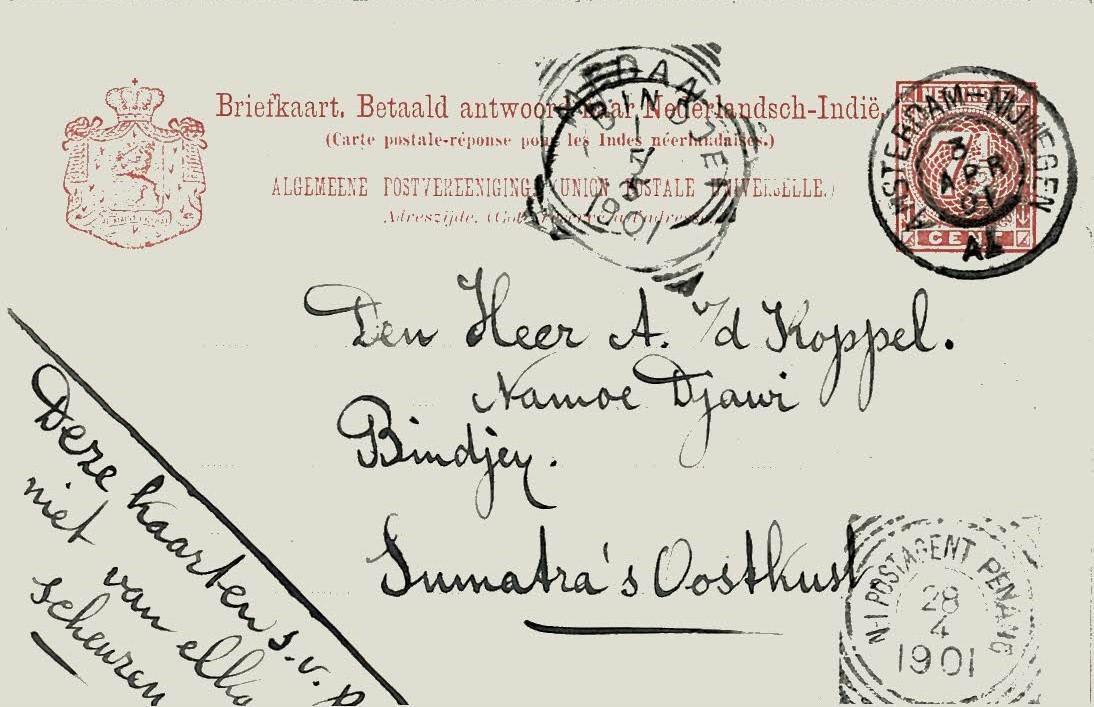 Briefkaart. Betaald antwoord naar Nederlandsch-Indië.
(Carte postale-réponse pour les Indes néerlandaises.)
ALGEMEENE POSTVEREENIGING (UNION POSTALE UNIVERSELLE.)
Adreszijde.
MEDAN
BINDJEI
1901
AMSTERDAM–NIJMEGEN
3
APR
01
7½
CENT
Den Heer A. v/d Koppel.
Namoe Djawi
Bindjey.
Sumatra's Oostkust
Deze kaarten s.v.p
niet van elka
scheuren
N-I POSTAGENT PENANG
28
4
1901